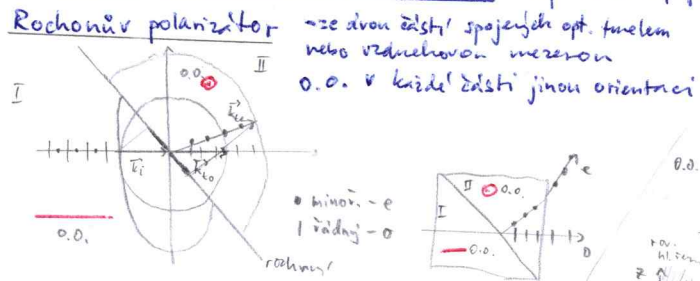 Rochonův polarizátor
-ze dvou částí spojených opt. tmelem
nebo vzduchovou mezerou
o.o. v každé části jinou orientaci
I
II
o.o.
k⃗te
k⃗i
k⃗to
o.o.
• mimoř. - e
| řádný - o
rozhraní
I
II
o.o.
o.o.
e
o
o.o.